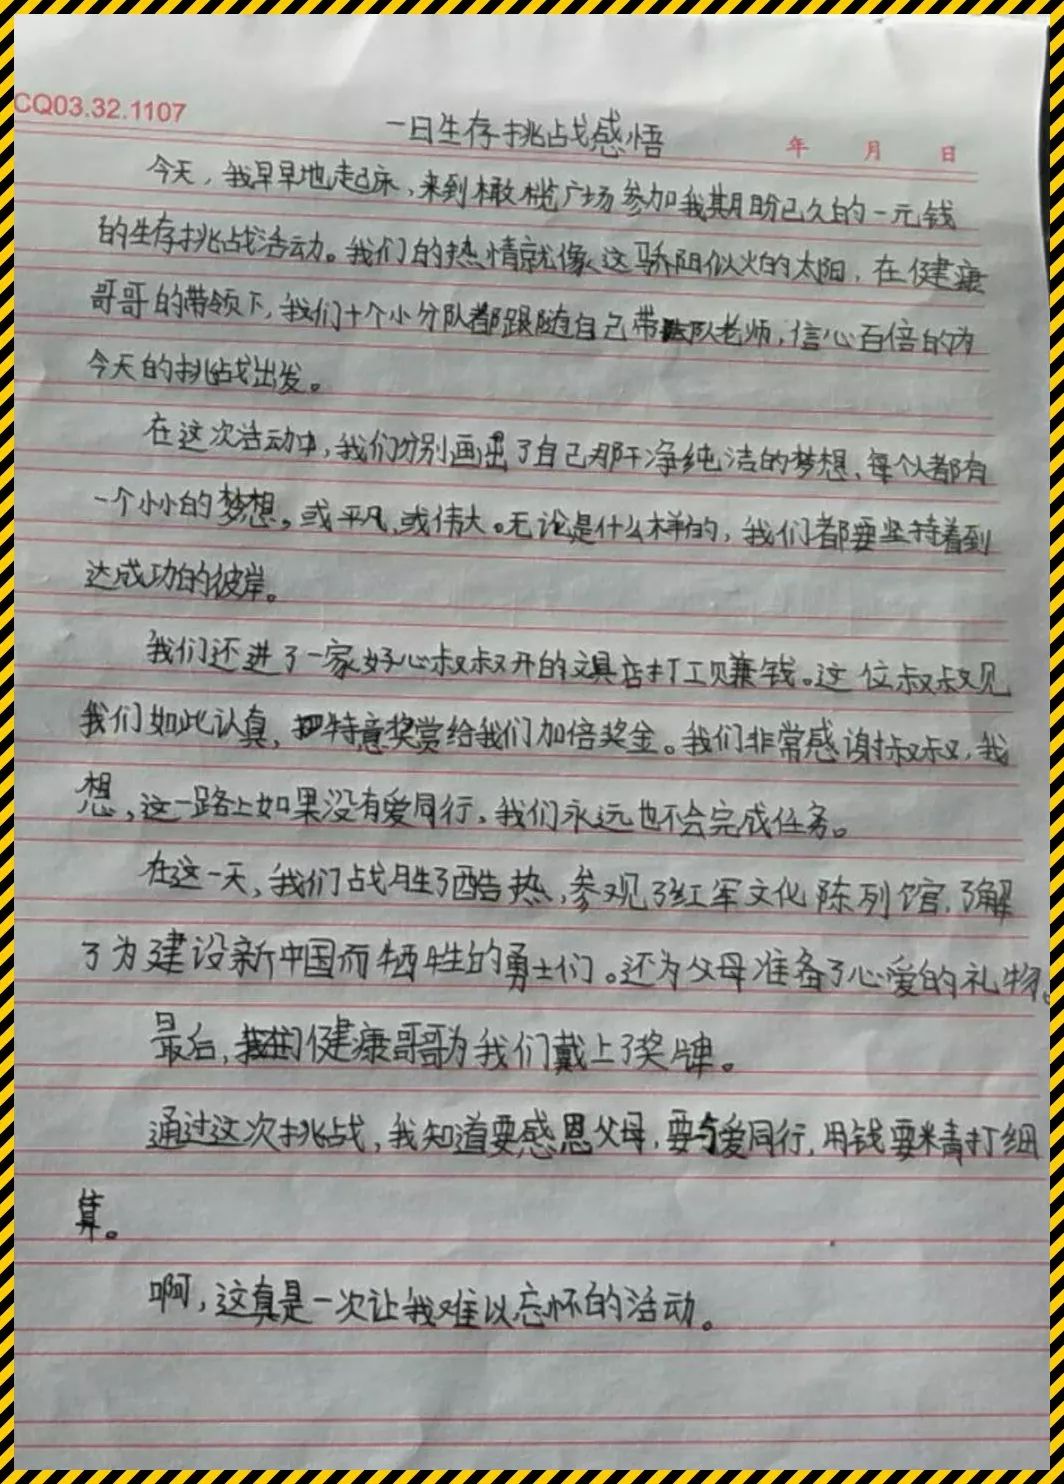 CQ03.32.1107
一日生存挑战感悟
年 月 日
今天，我早早地起床，来到橄榄广场参加我期盼已久的一元钱
的生存挑战活动。我们的热情就像这骄阳似火的太阳，在健康
哥哥的带领下，我们十个小分队都跟随自己带队老师，信心百倍的为
今天的挑战出发。
在这次活动中，我们分别画出了自己那干净纯洁的梦想，每个人都有
一个小小的梦想。或平凡，或伟大。无论是什么样的，我们都要坚持着到
达成功的彼岸。
我们还进了一家好心叔叔开的文具店打工赚钱。这位叔叔见
我们如此认真，特意奖赏给我们加倍奖金。我们非常感谢叔叔，我
想，这一路上如果没有爱同行，我们永远也不会完成任务。
在这一天，我们战胜了酷热，参观了红军文化陈列馆，了解
了为建设新中国而牺牲的勇士们。还为父母准备了心爱的礼物。
最后，健康哥哥为我们戴上了奖牌。
通过这次挑战，我知道要感恩父母，要与爱同行，用钱要精打细
算。
啊，这真是一次让我难以忘怀的活动。